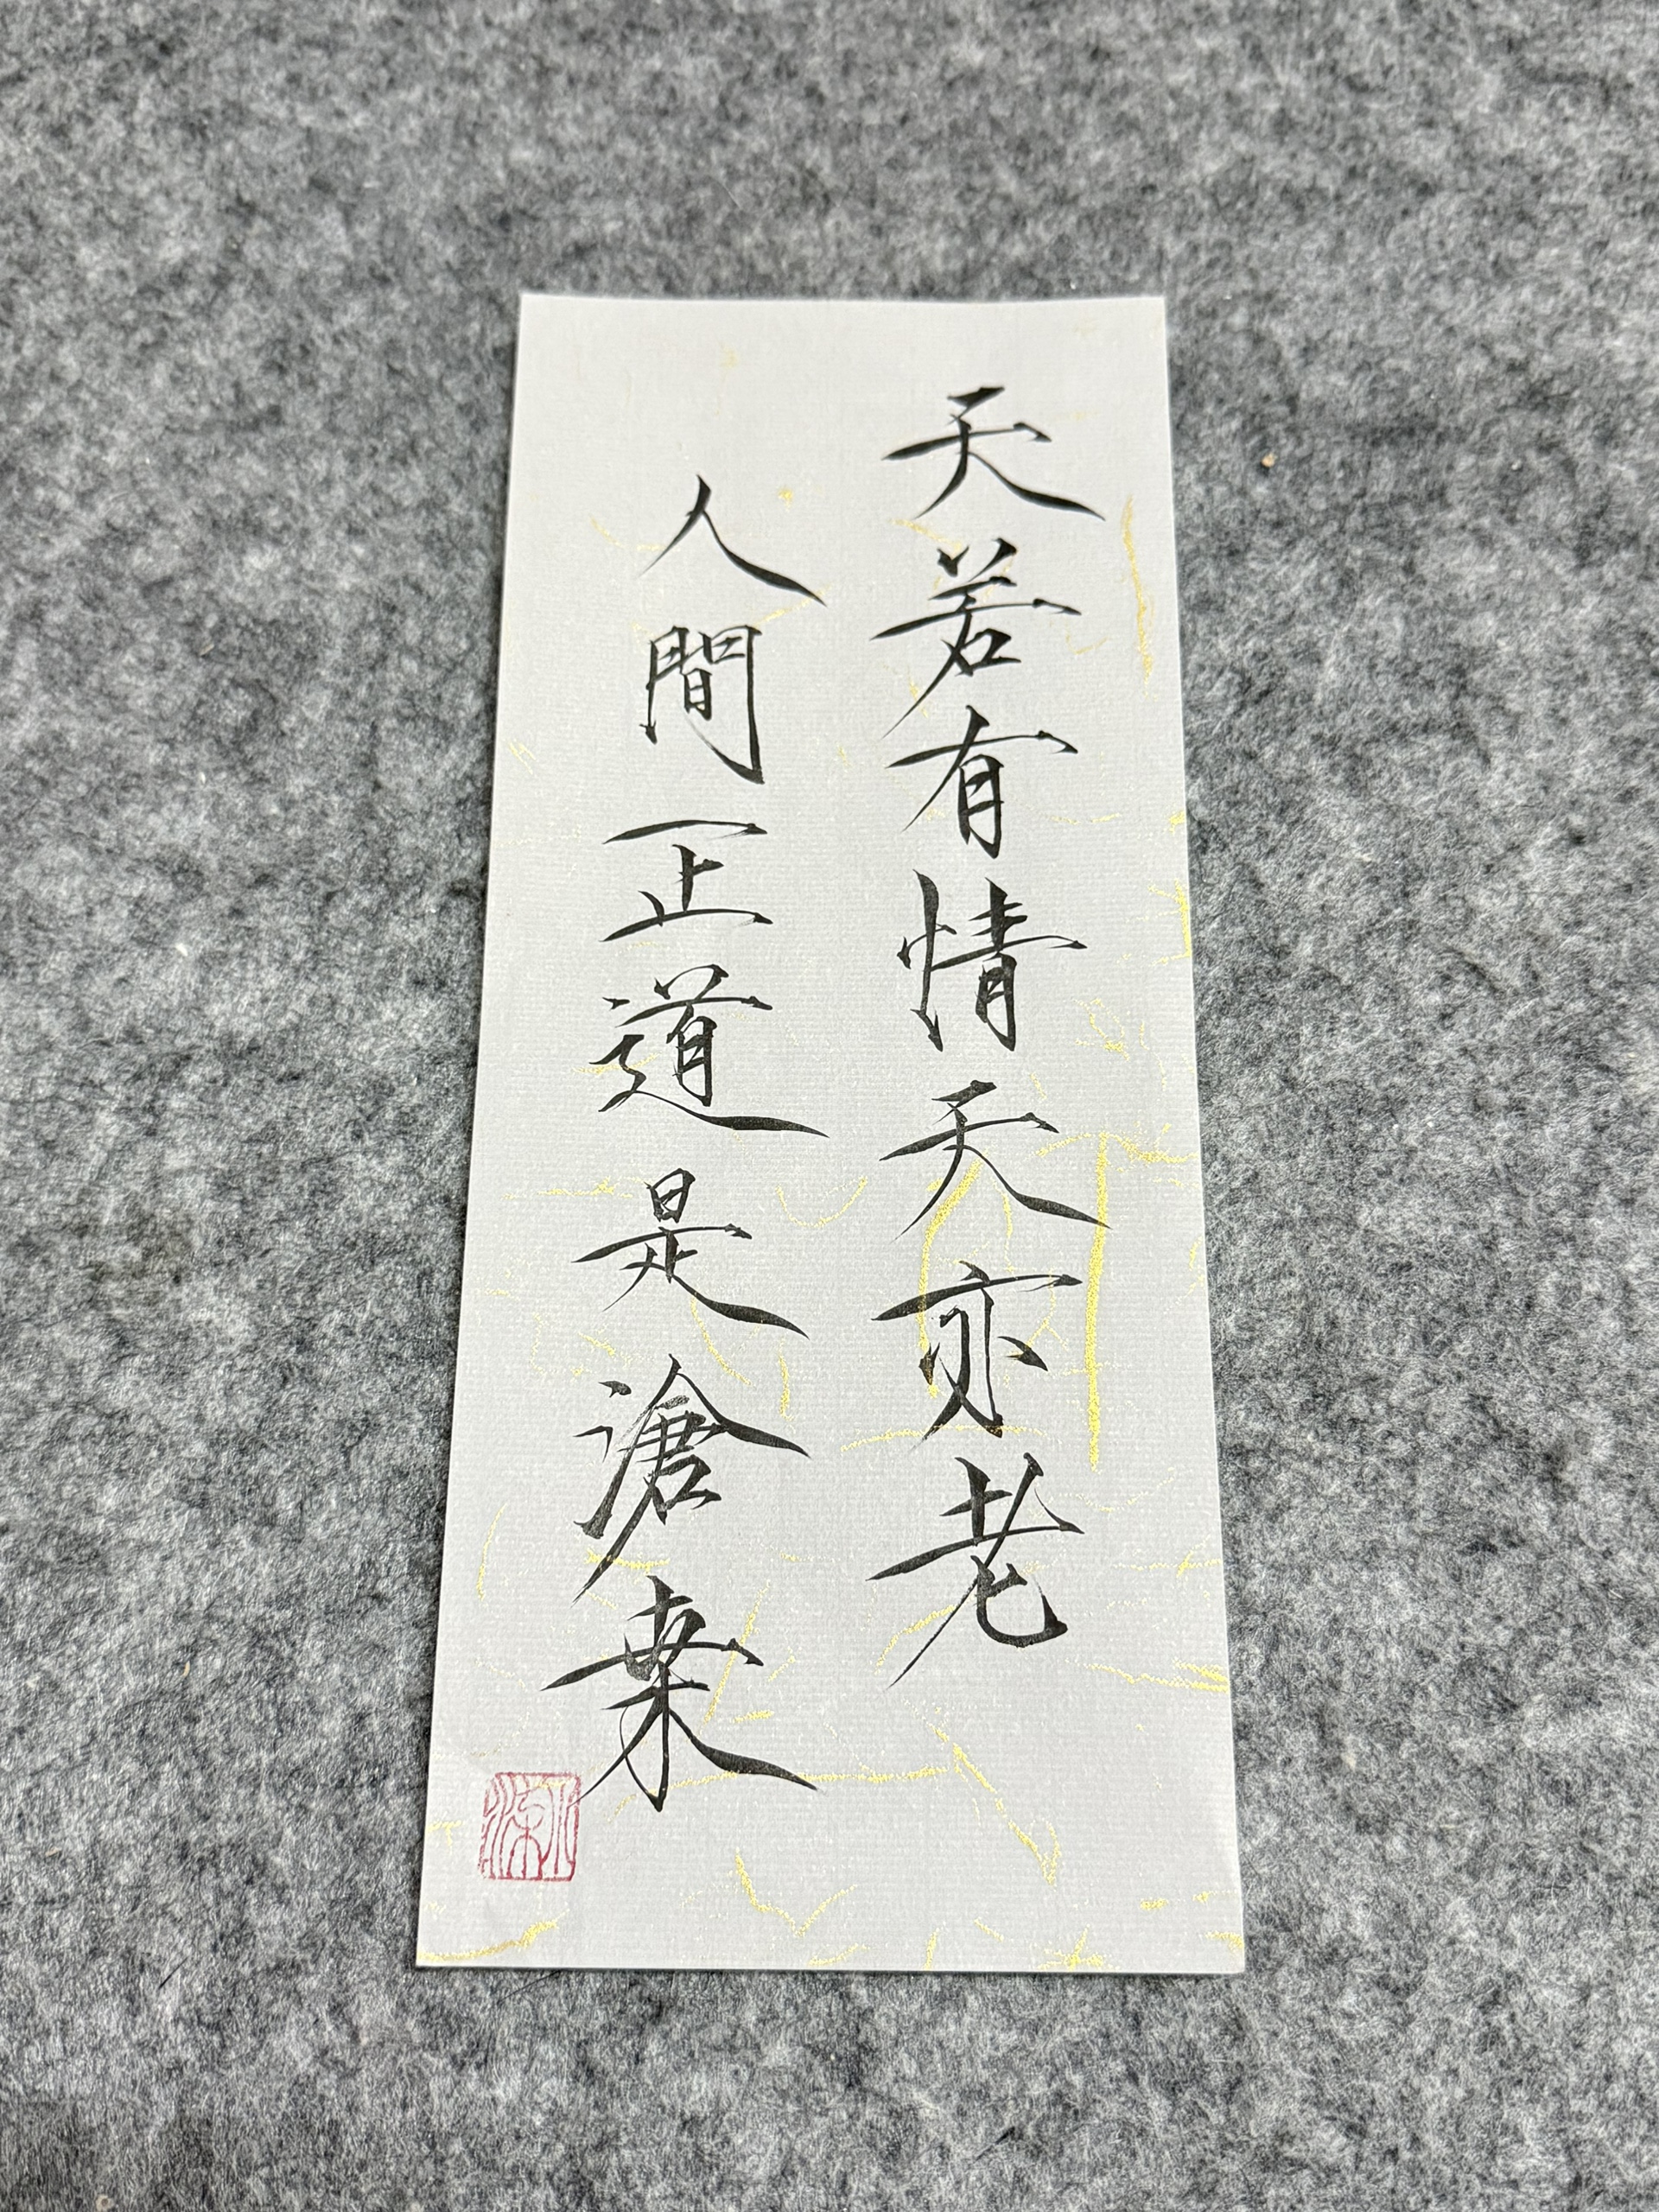 天若有情天亦老
人間正道是滄桒